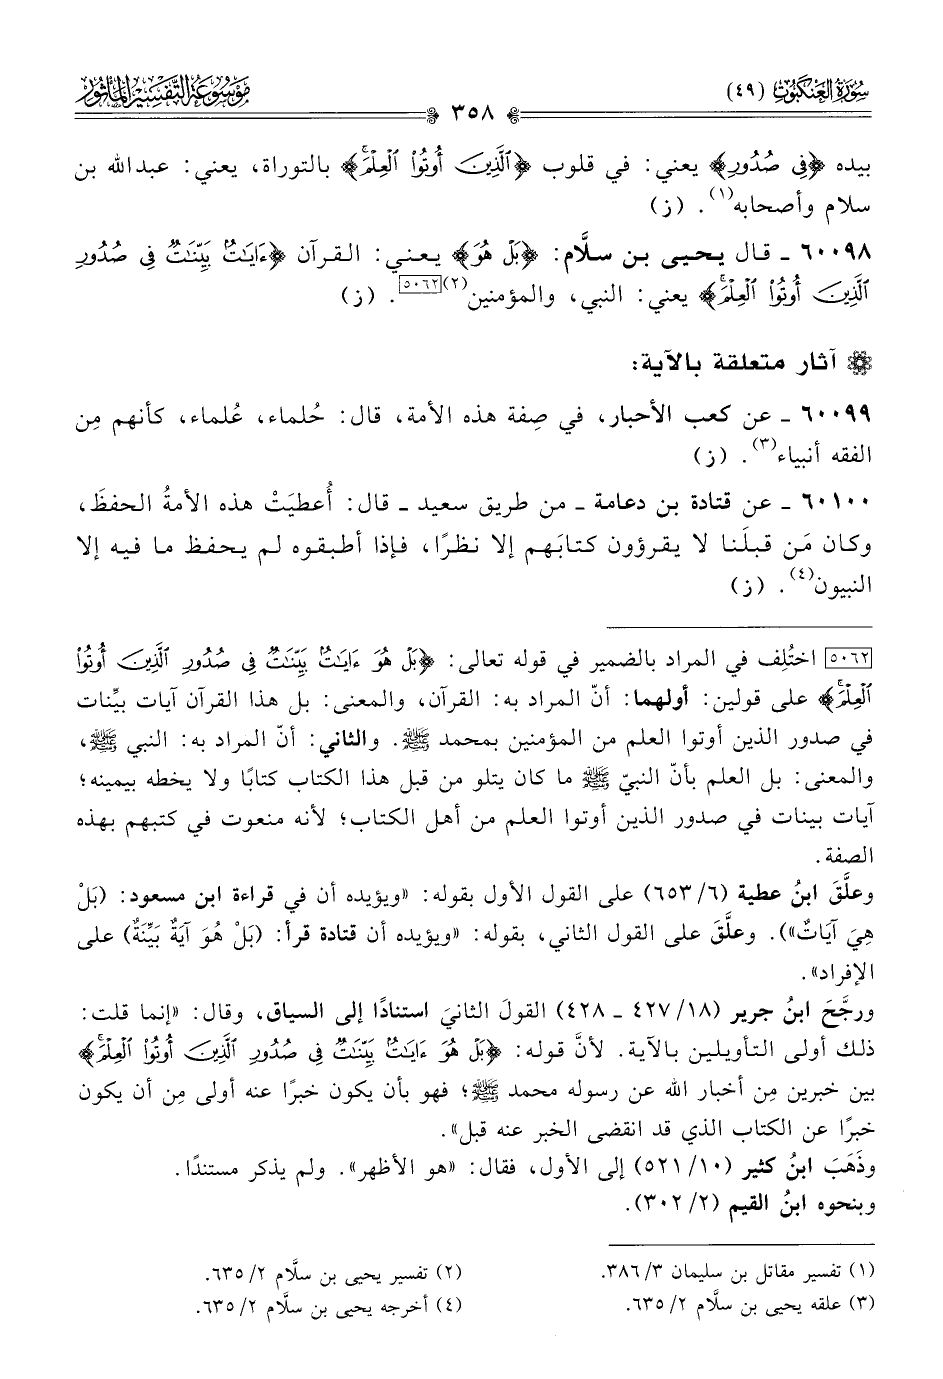 سُورَةُ العَنْكَبُوتِ (٤٩)
٣٥٨
مَوْسُوعَةُ التَّفْسِيْرِ المَأْثُور
بيده ﴿فِي صُدُورِ﴾ يعني: في قلوب ﴿ٱلَّذِينَ أُوتُوا۟ ٱلْعِلْمَۚ﴾ بالتوراة، يعني: عبدالله بن
سلام وأصحابه(١). (ز)
٦٠٠٩٨ ـ قال يحيى بن سلَّام: ﴿بَلْ هُوَ﴾ يعني: القرآن ﴿ءَايَٰتٌۢ بَيِّنَٰتٌ فِي صُدُورِ
ٱلَّذِينَ أُوتُوا۟ ٱلْعِلْمَۚ﴾ يعني: النبي، والمؤمنين(٢)[٥٠٦٢]. (ز)
آثار متعلقة بالآية:
٦٠٠٩٩ ـ عن كعب الأحبار، في صِفة هذه الأمة، قال: حُلماء، عُلماء، كأنهم مِن
الفقه أنبياء(٣). (ز)
٦٠١٠٠ ـ عن قتادة بن دعامة ـ من طريق سعيد ـ قال: أُعطيَتْ هذه الأمةُ الحفظَ،
وكان مَن قبلَنا لا يقرؤون كتابَهم إلا نظرًا، فإذا أطبقوه لم يحفظ ما فيه إلا
النبيون(٤). (ز)
[٥٠٦٢] اختُلِف في المراد بالضمير في قوله تعالى: ﴿بَلْ هُوَ ءَايَٰتٌۢ بَيِّنَٰتٌ فِي صُدُورِ ٱلَّذِينَ أُوتُوا۟
ٱلْعِلْمَۚ﴾ على قولين: أولهما: أنّ المراد به: القرآن، والمعنى: بل هذا القرآن آيات بيِّنات
في صدور الذين أوتوا العلم من المؤمنين بمحمد ﷺ. والثاني: أنّ المراد به: النبي ﷺ،
والمعنى: بل العلم بأنّ النبيّ ﷺ ما كان يتلو من قبل هذا الكتاب كتابًا ولا يخطه بيمينه؛
آيات بينات في صدور الذين أوتوا العلم من أهل الكتاب؛ لأنه منعوت في كتبهم بهذه
الصفة.
وعلَّقَ ابنُ عطية (٦/ ٦٥٣) على القول الأول بقوله: «ويؤيده أن في قراءة ابن مسعود: (بَلْ
هِيَ آيَاتٌ»). وعلَّقَ على القول الثاني، بقوله: «ويؤيده أن قتادة قرأ: (بَلْ هُوَ آيَةٌ بَيِّنَةٌ) على
الإفراد».
ورجَّحَ ابنُ جرير (١٨/ ٤٢٧ ـ ٤٢٨) القولَ الثانيَ استنادًا إلى السياق، وقال: «إنما قلت:
ذلك أولى التأويلين بالآية. لأنَّ قوله: ﴿بَلْ هُوَ ءَايَٰتٌۢ بَيِّنَٰتٌ فِي صُدُورِ ٱلَّذِينَ أُوتُوا۟ ٱلْعِلْمَۚ﴾
بين خبرين مِن أخبار الله عن رسوله محمد ﷺ؛ فهو بأن يكون خبرًا عنه أولى مِن أن يكون
خبرًا عن الكتاب الذي قد انقضى الخبر عنه قبل».
وذَهَبَ ابنُ كثير (١٠/ ٥٢١) إلى الأول، فقال: «هو الأظهر». ولم يذكر مستندًا.
وبنحوه ابنُ القيم (٢/ ٣٠٢).
(١) تفسير مقاتل بن سليمان ٣/ ٣٨٦.
(٢) تفسير يحيى بن سلَّام ٢/ ٦٣٥.
(٣) علقه يحيى بن سلَّام ٢/ ٦٣٥.
(٤) أخرجه يحيى بن سلَّام ٢/ ٦٣٥.